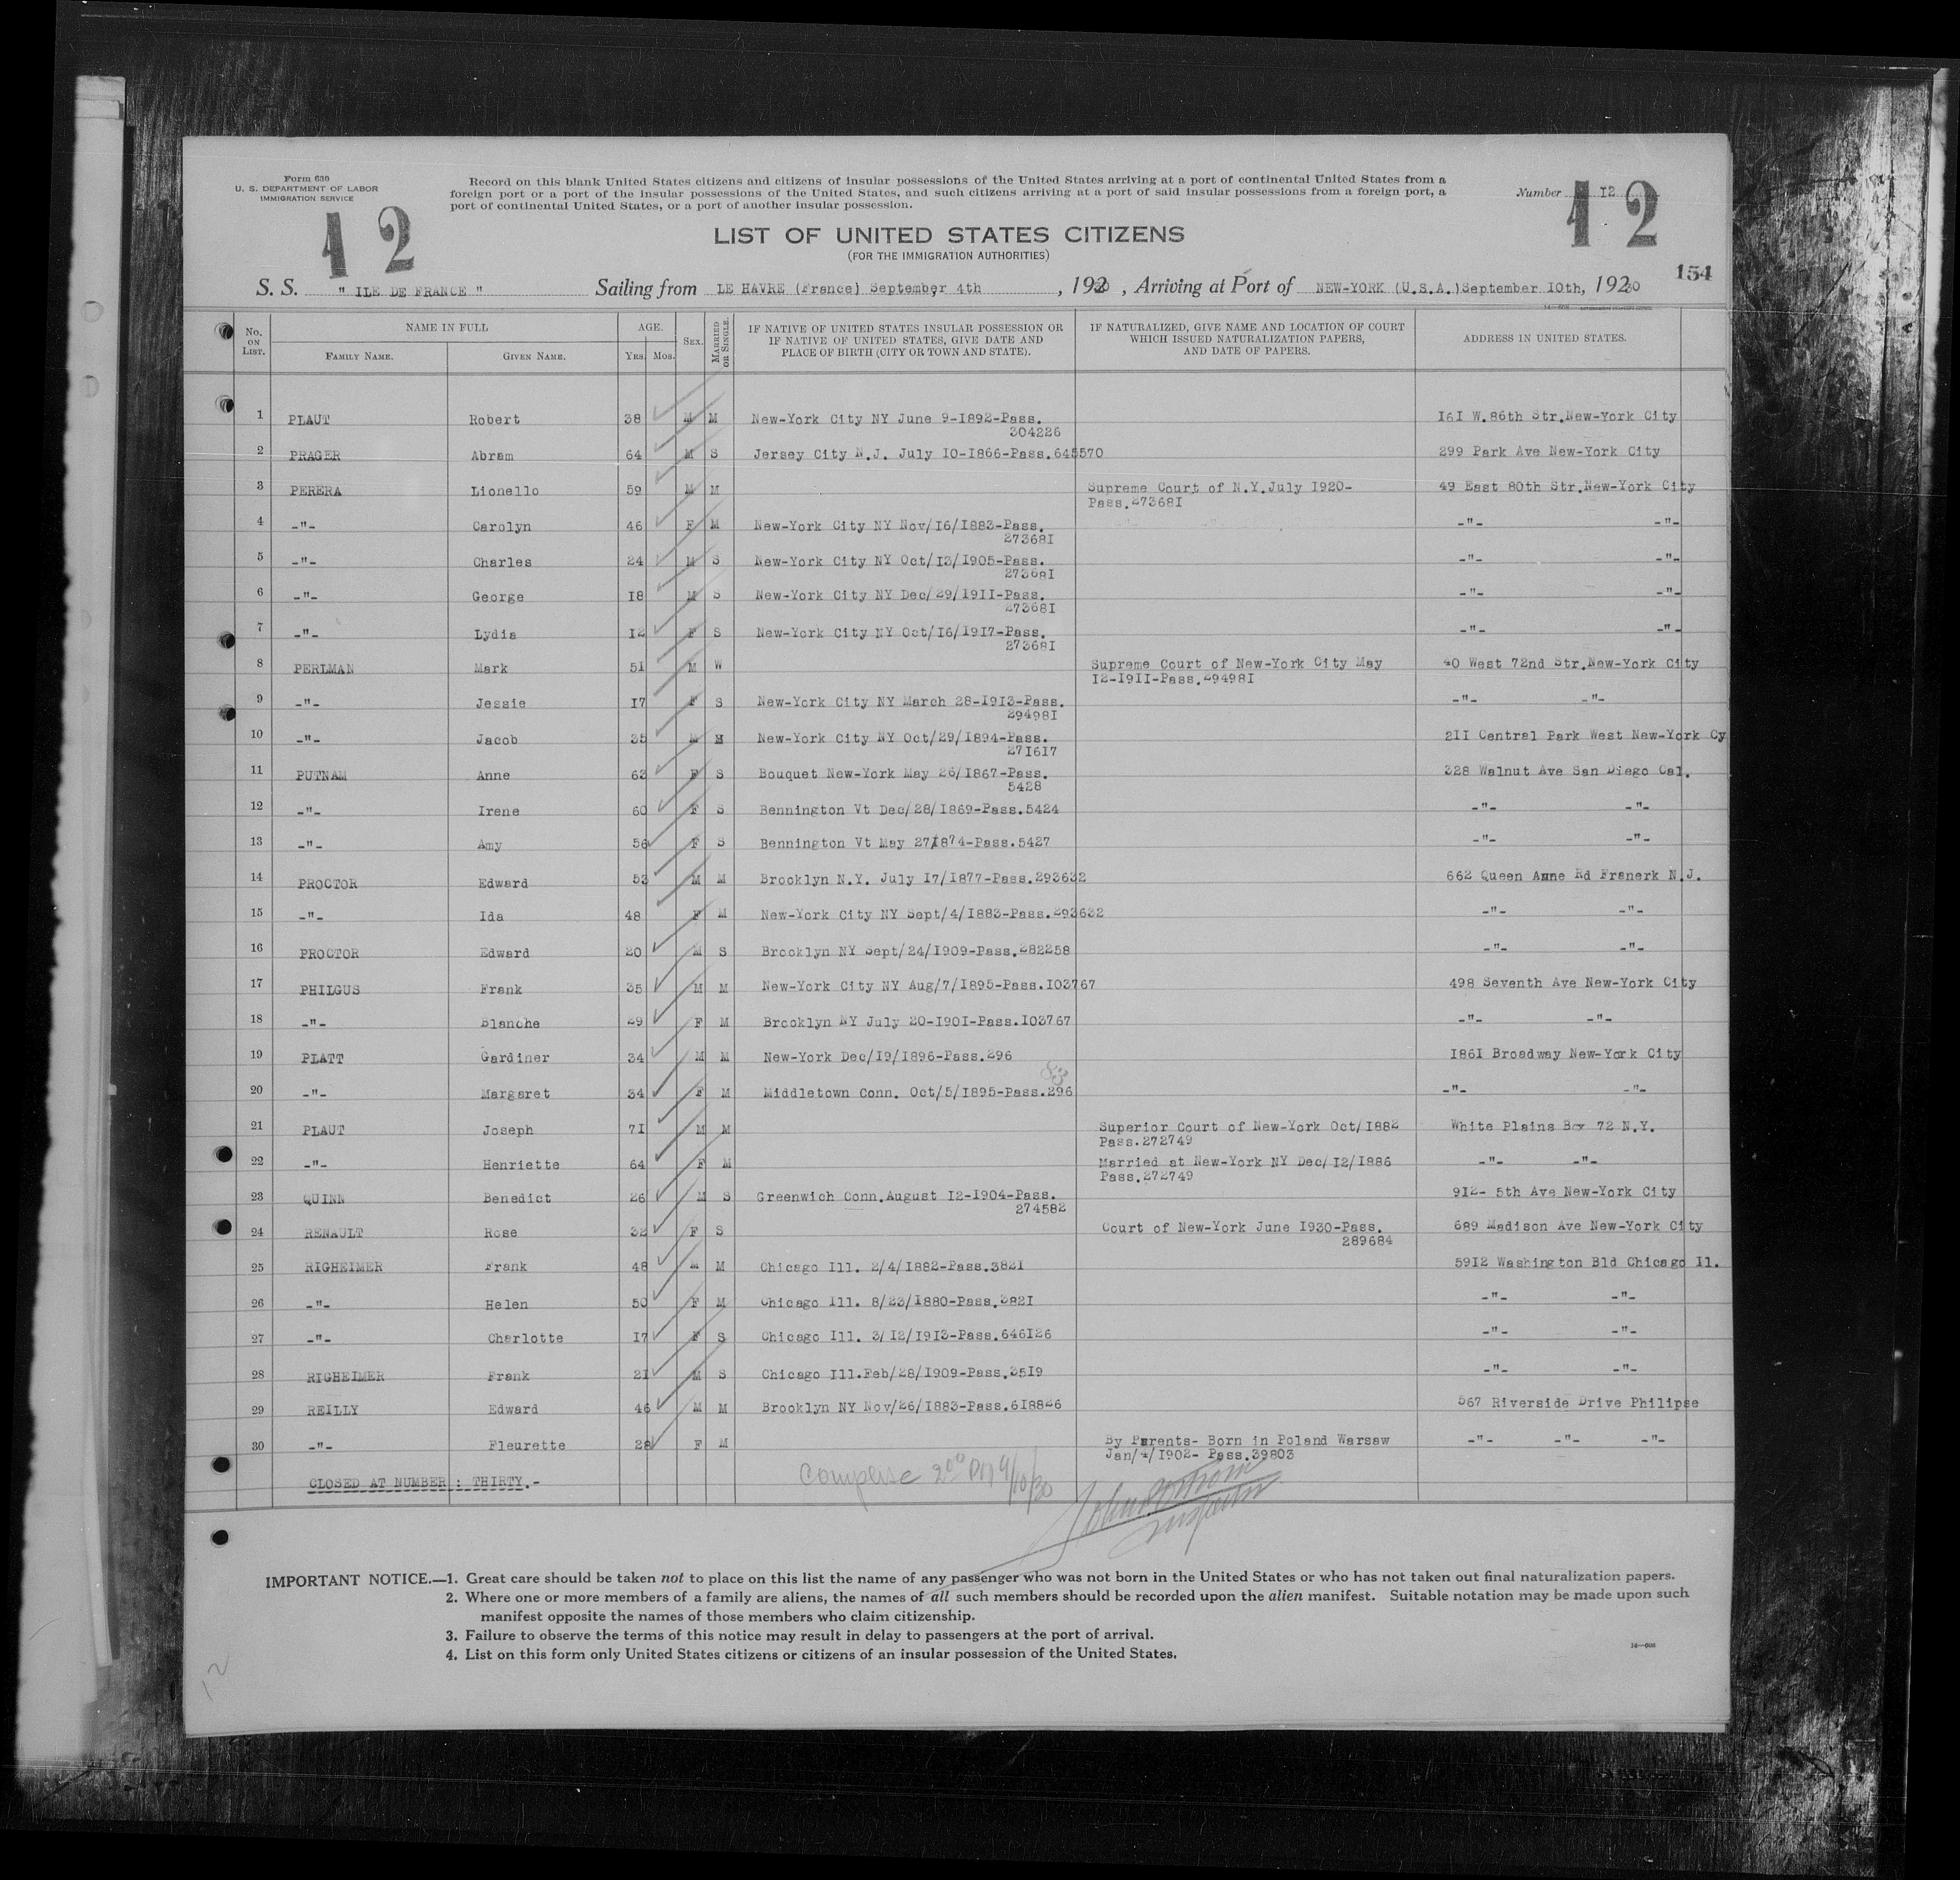 Form 630
U. S. DEPARTMENT OF LABOR
IMMIGRATION SERVICE
Record on this blank United States citizens and citizens of insular possessions of the United States arriving at a port of continental United States from a
foreign port or a port of the insular possessions of the United States, and such citizens arriving at a port of said insular possessions from a foreign port, a
port of continental United States, or a port of another insular possession.
Number 12
12
12
LIST OF UNITED STATES CITIZENS
(FOR THE IMMIGRATION AUTHORITIES)
154
S. S. " ILE DE FRANCE " Sailing from LE HAVRE (France) September 4th , 1930 , Arriving at Port of NEW-YORK (U.S.A.)September 10th, 1930
No. ON LIST. NAME IN FULL FAMILY NAME. GIVEN NAME. AGE. YRS. MOS. SEX. MARRIED OR SINGLE. IF NATIVE OF UNITED STATES INSULAR POSSESSION OR IF NATIVE OF UNITED STATES, GIVE DATE AND PLACE OF BIRTH (CITY OR TOWN AND STATE). IF NATURALIZED, GIVE NAME AND LOCATION OF COURT WHICH ISSUED NATURALIZATION PAPERS, AND DATE OF PAPERS. ADDRESS IN UNITED STATES.
1 PLAUT Robert 38 M M New-York City NY June 9-1892-Pass. 161 W.86th Str.New-York City
304226
2 PRAGER Abram 64 M S Jersey City N.J. July 10-1866-Pass.645570 299 Park Ave New-York City
3 PERERA Lionello 59 M M Supreme Court of N.Y.July 1920- 49 East 80th Str.New-York City
Pass.273681
4 -"- Carolyn 46 F M New-York City NY Nov/16/1883-Pass. -"- -"-
273681
5 -"- Charles 24 M S New-York City NY Oct/13/1905-Pass. -"- -"-
273681
6 -"- George 18 M S New-York City NY Dec/29/1911-Pass. -"- -"-
273681
7 -"- Lydia 12 F S New-York City NY Oct/16/1917-Pass. -"- -"-
273681
8 PERLMAN Mark 51 M W Supreme Court of New-York City May 40 West 72nd Str.New-York City
12-1911-Pass.294981
9 -"- Jessie 17 F S New-York City NY March 28-1913-Pass. -"- -"-
294981
10 -"- Jacob 35 M M New-York City NY Oct/29/1894-Pass. 211 Central Park West New-York Cy
271617
11 PUTNAM Anne 63 F S Bouquet New-York May 26/1867-Pass. 328 Walnut Ave San Diego Cal.
5428
12 -"- Irene 60 F S Bennington Vt Dec/28/1869-Pass.5424 -"- -"-
13 -"- Amy 56 F S Bennington Vt May 27/1874-Pass.5427 -"- -"-
14 PROCTOR Edward 53 M M Brooklyn N.Y. July 17/1877-Pass.293632 662 Queen Anne Rd Franerk N.J.
15 -"- Ida 48 F M New-York City NY Sept/4/1883-Pass.293632 -"- -"-
16 PROCTOR Edward 20 M S Brooklyn NY Sept/24/1909-Pass.282258 -"- -"-
17 PHILGUS Frank 35 M M New-York City NY Aug/7/1895-Pass.103767 498 Seventh Ave New-York City
18 -"- Blanche 29 F M Brooklyn NY July 20-1901-Pass.103767 -"- -"-
19 PLATT Gardiner 34 M M New-York Dec/19/1896-Pass.296 1861 Broadway New-York City
83
20 -"- Margaret 34 F M Middletown Conn. Oct/5/1895-Pass.296 -"- -"-
21 PLAUT Joseph 71 M M Superior Court of New-York Oct/1882 White Plains Box 72 N.Y.
Pass.272749
22 -"- Henriette 64 F M Married at New-York NY Dec/12/1886 -"- -"-
Pass.272749
23 QUINN Benedict 26 M S Greenwich Conn.August 12-1904-Pass. 912- 5th Ave New-York City
274582
24 RENAULT Rose 32 F S Court of New-York June 1930-Pass. 689 Madison Ave New-York City
289684
25 RIGHEIMER Frank 48 M M Chicago Ill. 2/4/1882-Pass.3821 5912 Washington Bld Chicago Il.
26 -"- Helen 50 F M Chicago Ill. 8/23/1880-Pass.3821 -"- -"-
27 -"- Charlotte 17 F S Chicago Ill. 3/12/1913-Pass.646126 -"- -"-
28 RIGHEIMER Frank 21 M S Chicago Ill.Feb/28/1909-Pass.3519 -"- -"-
29 REILLY Edward 46 M M Brooklyn NY Nov/26/1883-Pass.618826 567 Riverside Drive Philipse
30 -"- Fleurette 28 F M By Parents- Born in Poland Warsaw -"- -"- -"-
Jan/4/1902- Pass.39803
CLOSED AT NUMBER : THIRTY.-
200 PM 9/10/30
Inspector
IMPORTANT NOTICE.—1. Great care should be taken not to place on this list the name of any passenger who was not born in the United States or who has not taken out final naturalization papers.
2. Where one or more members of a family are aliens, the names of all such members should be recorded upon the alien manifest. Suitable notation may be made upon such
manifest opposite the names of those members who claim citizenship.
3. Failure to observe the terms of this notice may result in delay to passengers at the port of arrival.
4. List on this form only United States citizens or citizens of an insular possession of the United States.
14—608
12